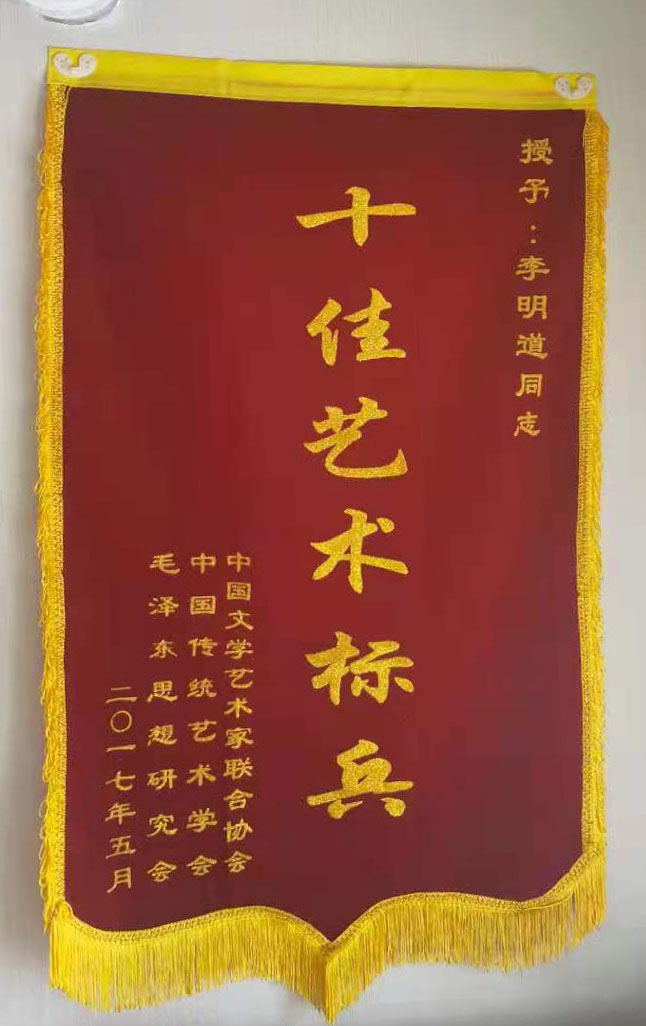 授予：李明道同志
十佳艺术标兵
中国文学艺术家联合协会
中国传统艺术学会
毛泽东思想研究会
二〇一七年五月